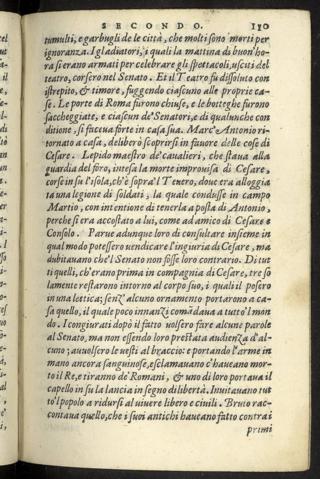 SECONDO. 130
tumulti, e garbugli de le città, che molti sono morti per
ignoranza. I gladiatori, i quali la mattina di buon'ho-
ra si erano armati per celebrare gli spettacoli, usciti del
teatro, corsero nel Senato. Et il Teatro fu dissoluto con
istrepito, & timore, fuggendo ciascuno alle proprie ca-
se. Le porte di Roma furono chiuse, e le botteghe furono
saccheggiate, e ciascun de' Senatori, e di qualunche con
ditione, si faceua forte in casa sua. Marc'Antonio ri-
tornato a casa, deliberò scoprirsi in fauore delle cose di
Cesare. Lepido maestro de' caualieri, che staua alla
guardia del foro, intesa la morte improuisa di Cesare,
corse in su l'isola, ch'è sopra'l Teuero, doue era alloggia
ta una legione di soldati, la quale condusse in campo
Martio, con intentione di tenerla a posta di Antonio,
perche si era accostato a lui, come ad amico di Cesare e
Consolo. Parue adunque loro di consultare insieme in
qual modo potessero uendicare l'ingiuria di Cesare, ma
dubitauano che'l Senato non fosse loro contrario. Di tut
ti quelli, ch'erano prima in compagnia di Cesare, tre so
lamente restarono intorno al corpo suo, i quali il posero
in una lettica; senz'alcuno ornamento portarono a ca-
sa quello, il quale poco innanzi comādaua a tutto'l mon
do. I congiurati dopò il fatto uolsero fare alcune parole
al Senato, ma non essendo loro prestata audienza d'al-
cuno; auuolsero le uesti al braccio: e portando l'arme in
mano ancora sanguinose, esclamauano c'haueano mor-
to il Re, e tiranno de' Romani, & uno di loro portaua il
capello in su la lancia in segno di libertà. Inuitauano tut
to'l popolo a ridursi al uiuere libero e ciuili. Bruto rac-
contaua quello, che i suoi antichi haueano fatto contra i
primi